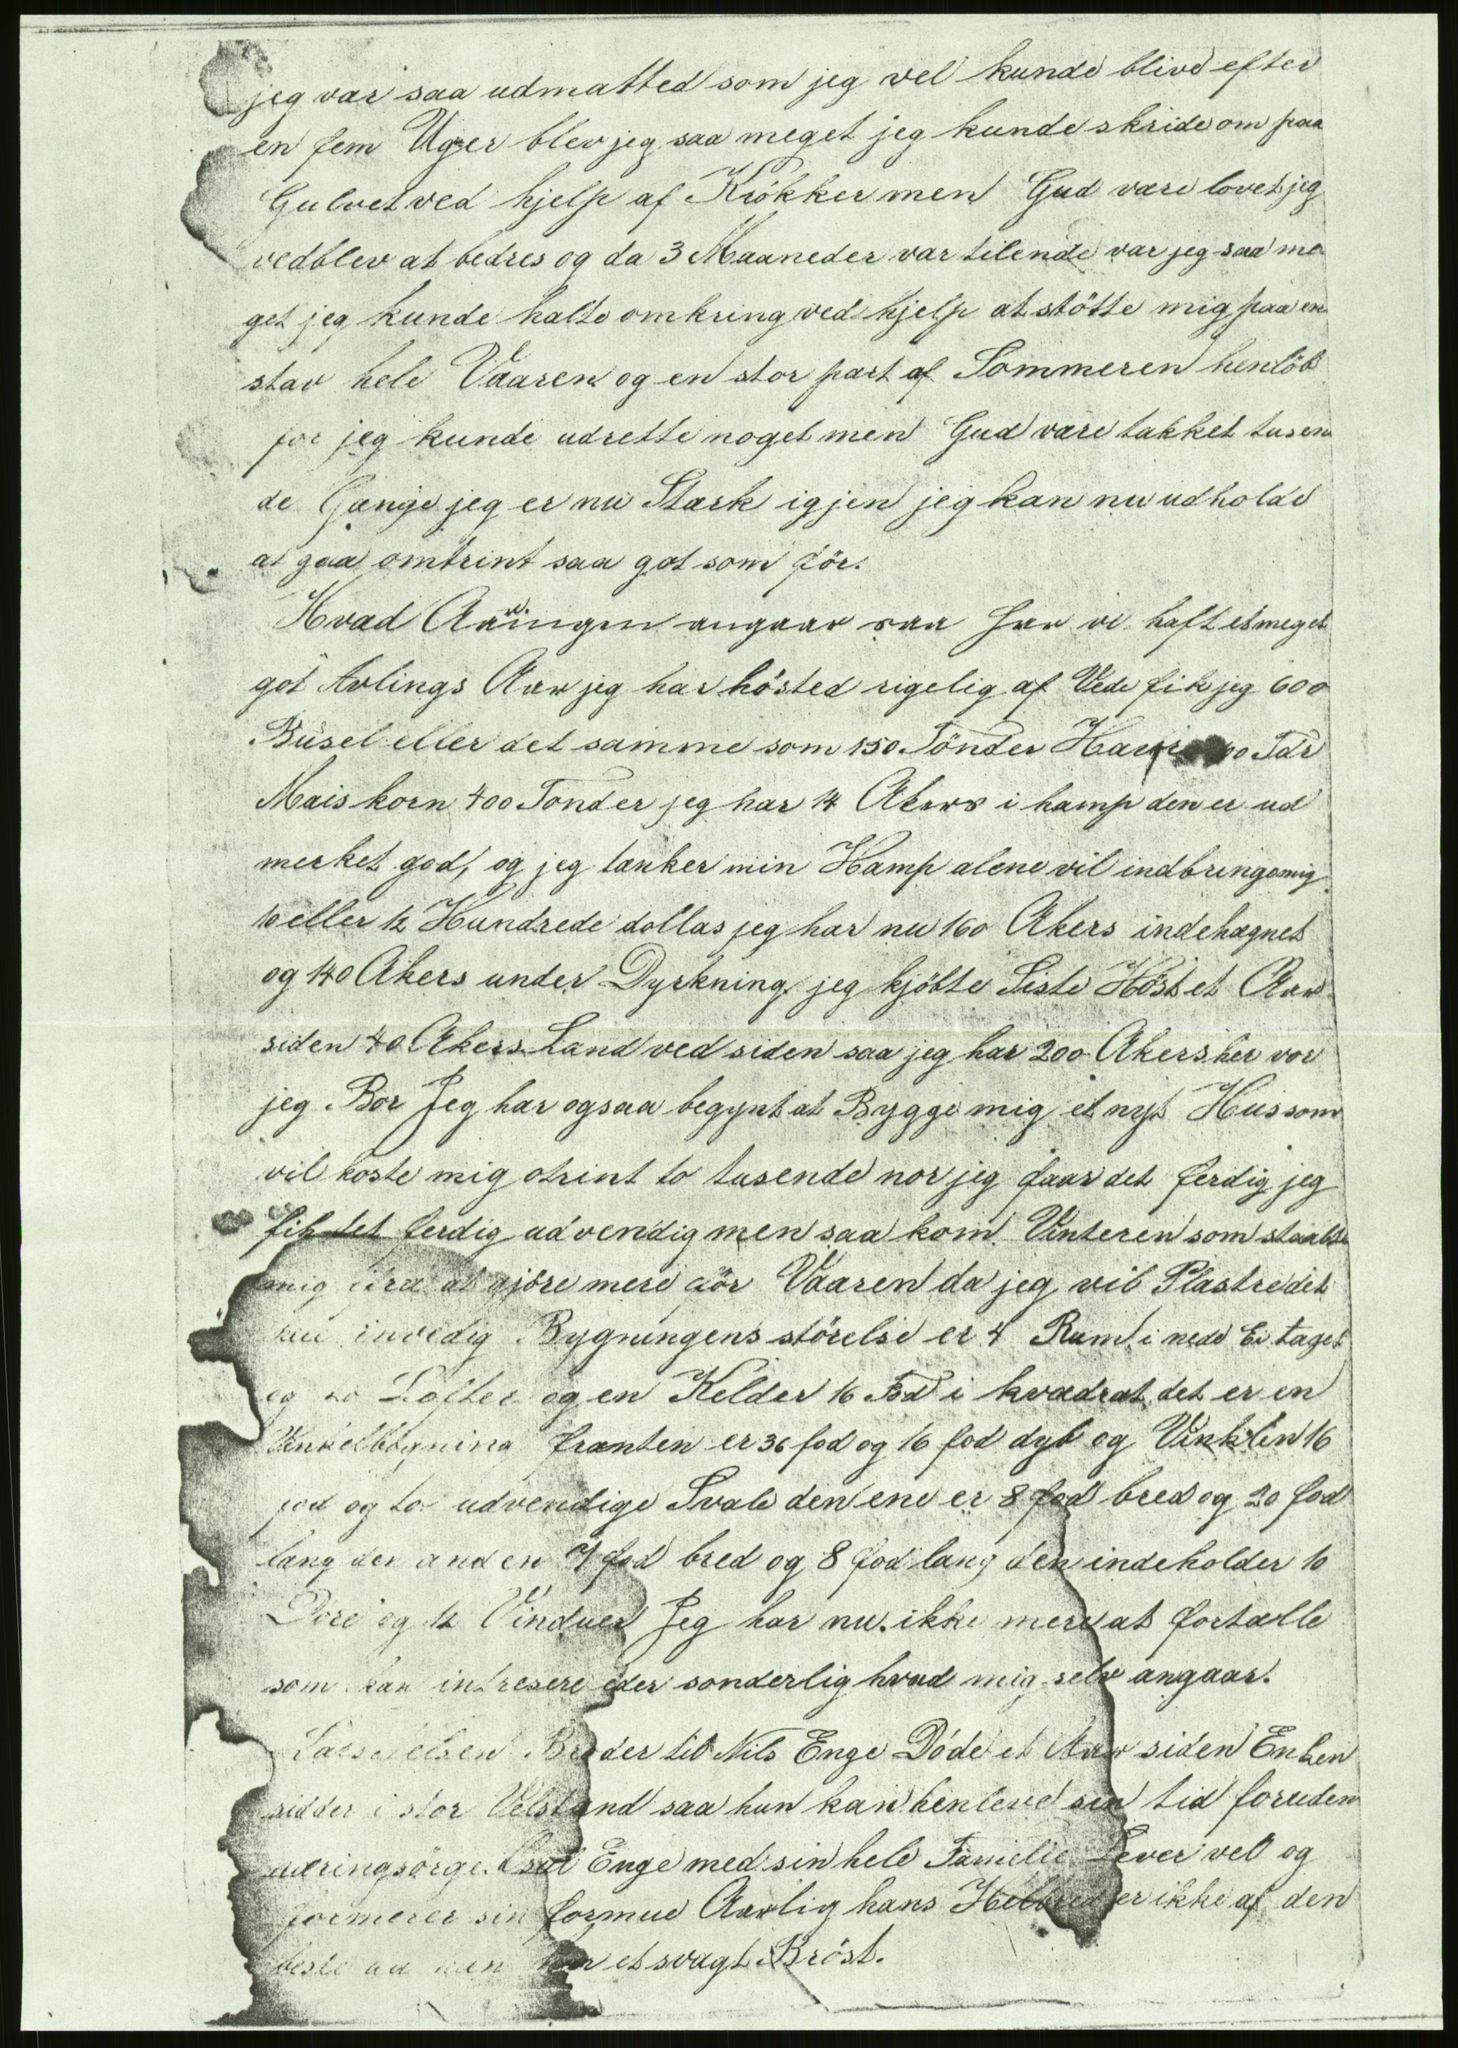 jeg var saa udmatted som jeg vel kunde blive efter
en fem Uger blev jeg saa meget jeg kunde skride om paa
Gulvet ved hjelp af Krökker men Gud være lovet jeg
vedblev at bedres og da 3 Maaneder var tilende var jeg saa me
get jeg kunde halte omkring ved hjelp at stötte mig paa en
stav hele Vaaren og en stor part af Sommeren henlöb
för jeg kunde udrette noget men Gud være takket tusen
de Gange jeg er nu Stærk igjen jeg kan nu udholde
at gaa omtrint saa got som för.
Hvad Aaringen angaar saa har vi haft et meget
got Avlings Aar jeg har hösted rigelig af Vede fik jeg 600
Busel eller det samme som 150 Tönder Havre 00 Tdr
Mais korn 400 Tonder jeg har 14 Akers i hamp den er ud
merket god, og jeg tænker min Hamp alene vil indbringe mig
10 eller 12 Hundrede dollas jeg har nu 160 Akers indehægnet
og 140 Akers under Dyrkning jeg kjöbte Siste Höst et Aar
siden 40 Akers Land ved siden saa jeg har 200 Akers her vor
jeg Bor Jeg har ogsaa begynt at Bygge mig et nyt Hus som
vil koste mig otrint to tusende nor jeg faar det ferdig jeg
fik det ferdig udvendig men saa kom Vinteren som
mig fra at gjöre mere för Vaaren da jeg vil Plastre det
invedig Bygningens störelse er 4 Rum i nede Etaget
og to Lofter og en Kelder 16 Fod i kvadrat det er en
Vinkelbygning franten er 36 fod og 16 fod dyb og Vinklen 16
fod og to udvendige Svale den ene er 8 fod bred og 20 fod
lang den anden 7 fod bred og 8 fod lang den indeholder 10
Dore og 12 Vinduer Jeg har nu ikke mere at fortælle
som kan intresere eder sonderlig hvad mig selv angaar.
Lars Nielsen Broder til Nils Enge Döde et Aar siden Enken
sidder i stor Velstand saa hun kan henleve sin tid foruden
næringsorge Enge med sin hele Familie Lever vel og
formerer sin formue Aarlig hans Helbred er ikke af den
beste har et svagt Bröst.